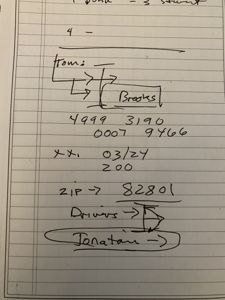 4 -
Brooks
4999 3190
0007 9466
xx. 03/24
200
ZIP → 82801
Drivers →
Jonatain →